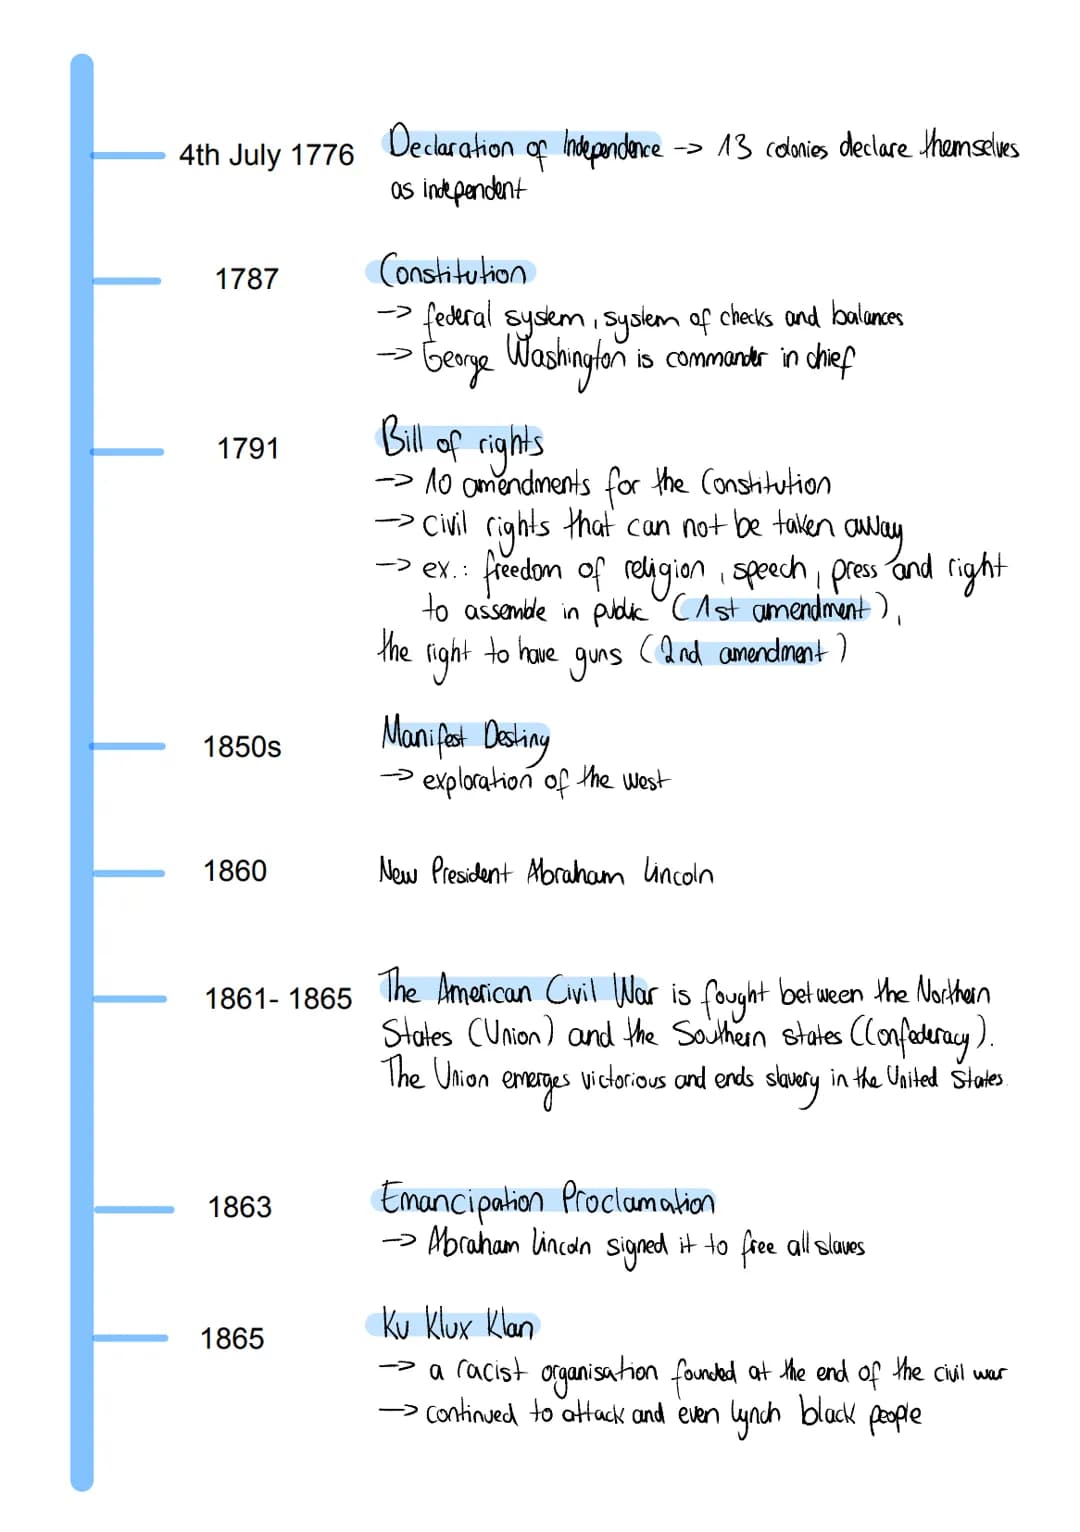 4th July 1776 Declaration of Independence -> 13 colonies declare themselves
as independent
1787 Constitution
-> federal system, system of checks and balances
-> George Washington is commander in chief
1791 Bill of rights
-> 10 amendments for the Constitution
-> civil rights that can not be taken away
-> ex.: freedom of religion, speech, press and right
to assemble in public (1st amendment),
the right to have guns (2nd amendment)
1850s Manifest Destiny
-> exploration of the west
1860 New President Abraham Lincoln
1861- 1865 The American Civil War is fought between the Northern
States (Union) and the Southern states (Confederacy).
The Union emerges victorious and ends slavery in the United States.
1863 Emancipation Proclamation
-> Abraham Lincoln signed it to free all slaves
1865 Ku Klux Klan
-> a racist organisation founded at the end of the civil war
-> continued to attack and even lynch black people